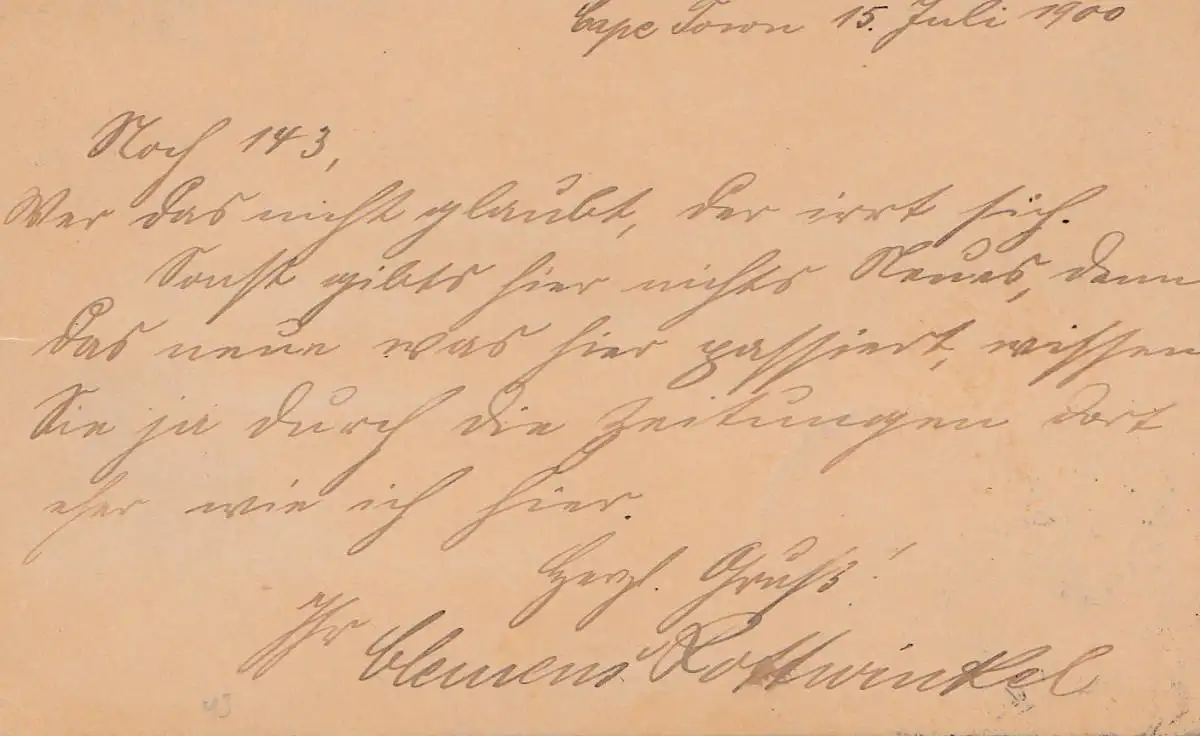 Cape Town 15. Juli 1900
Noch 143,
Wer das nicht glaubt, der irrt sich.
Sonst gibts hier nichts Neues, denn
das neue was hier passiert, wissen
Sie ja durch die Zeitungen dort
eher wie ich hier.
Herzl. Gruß!
Ihr Clemens Rottwinkel
43